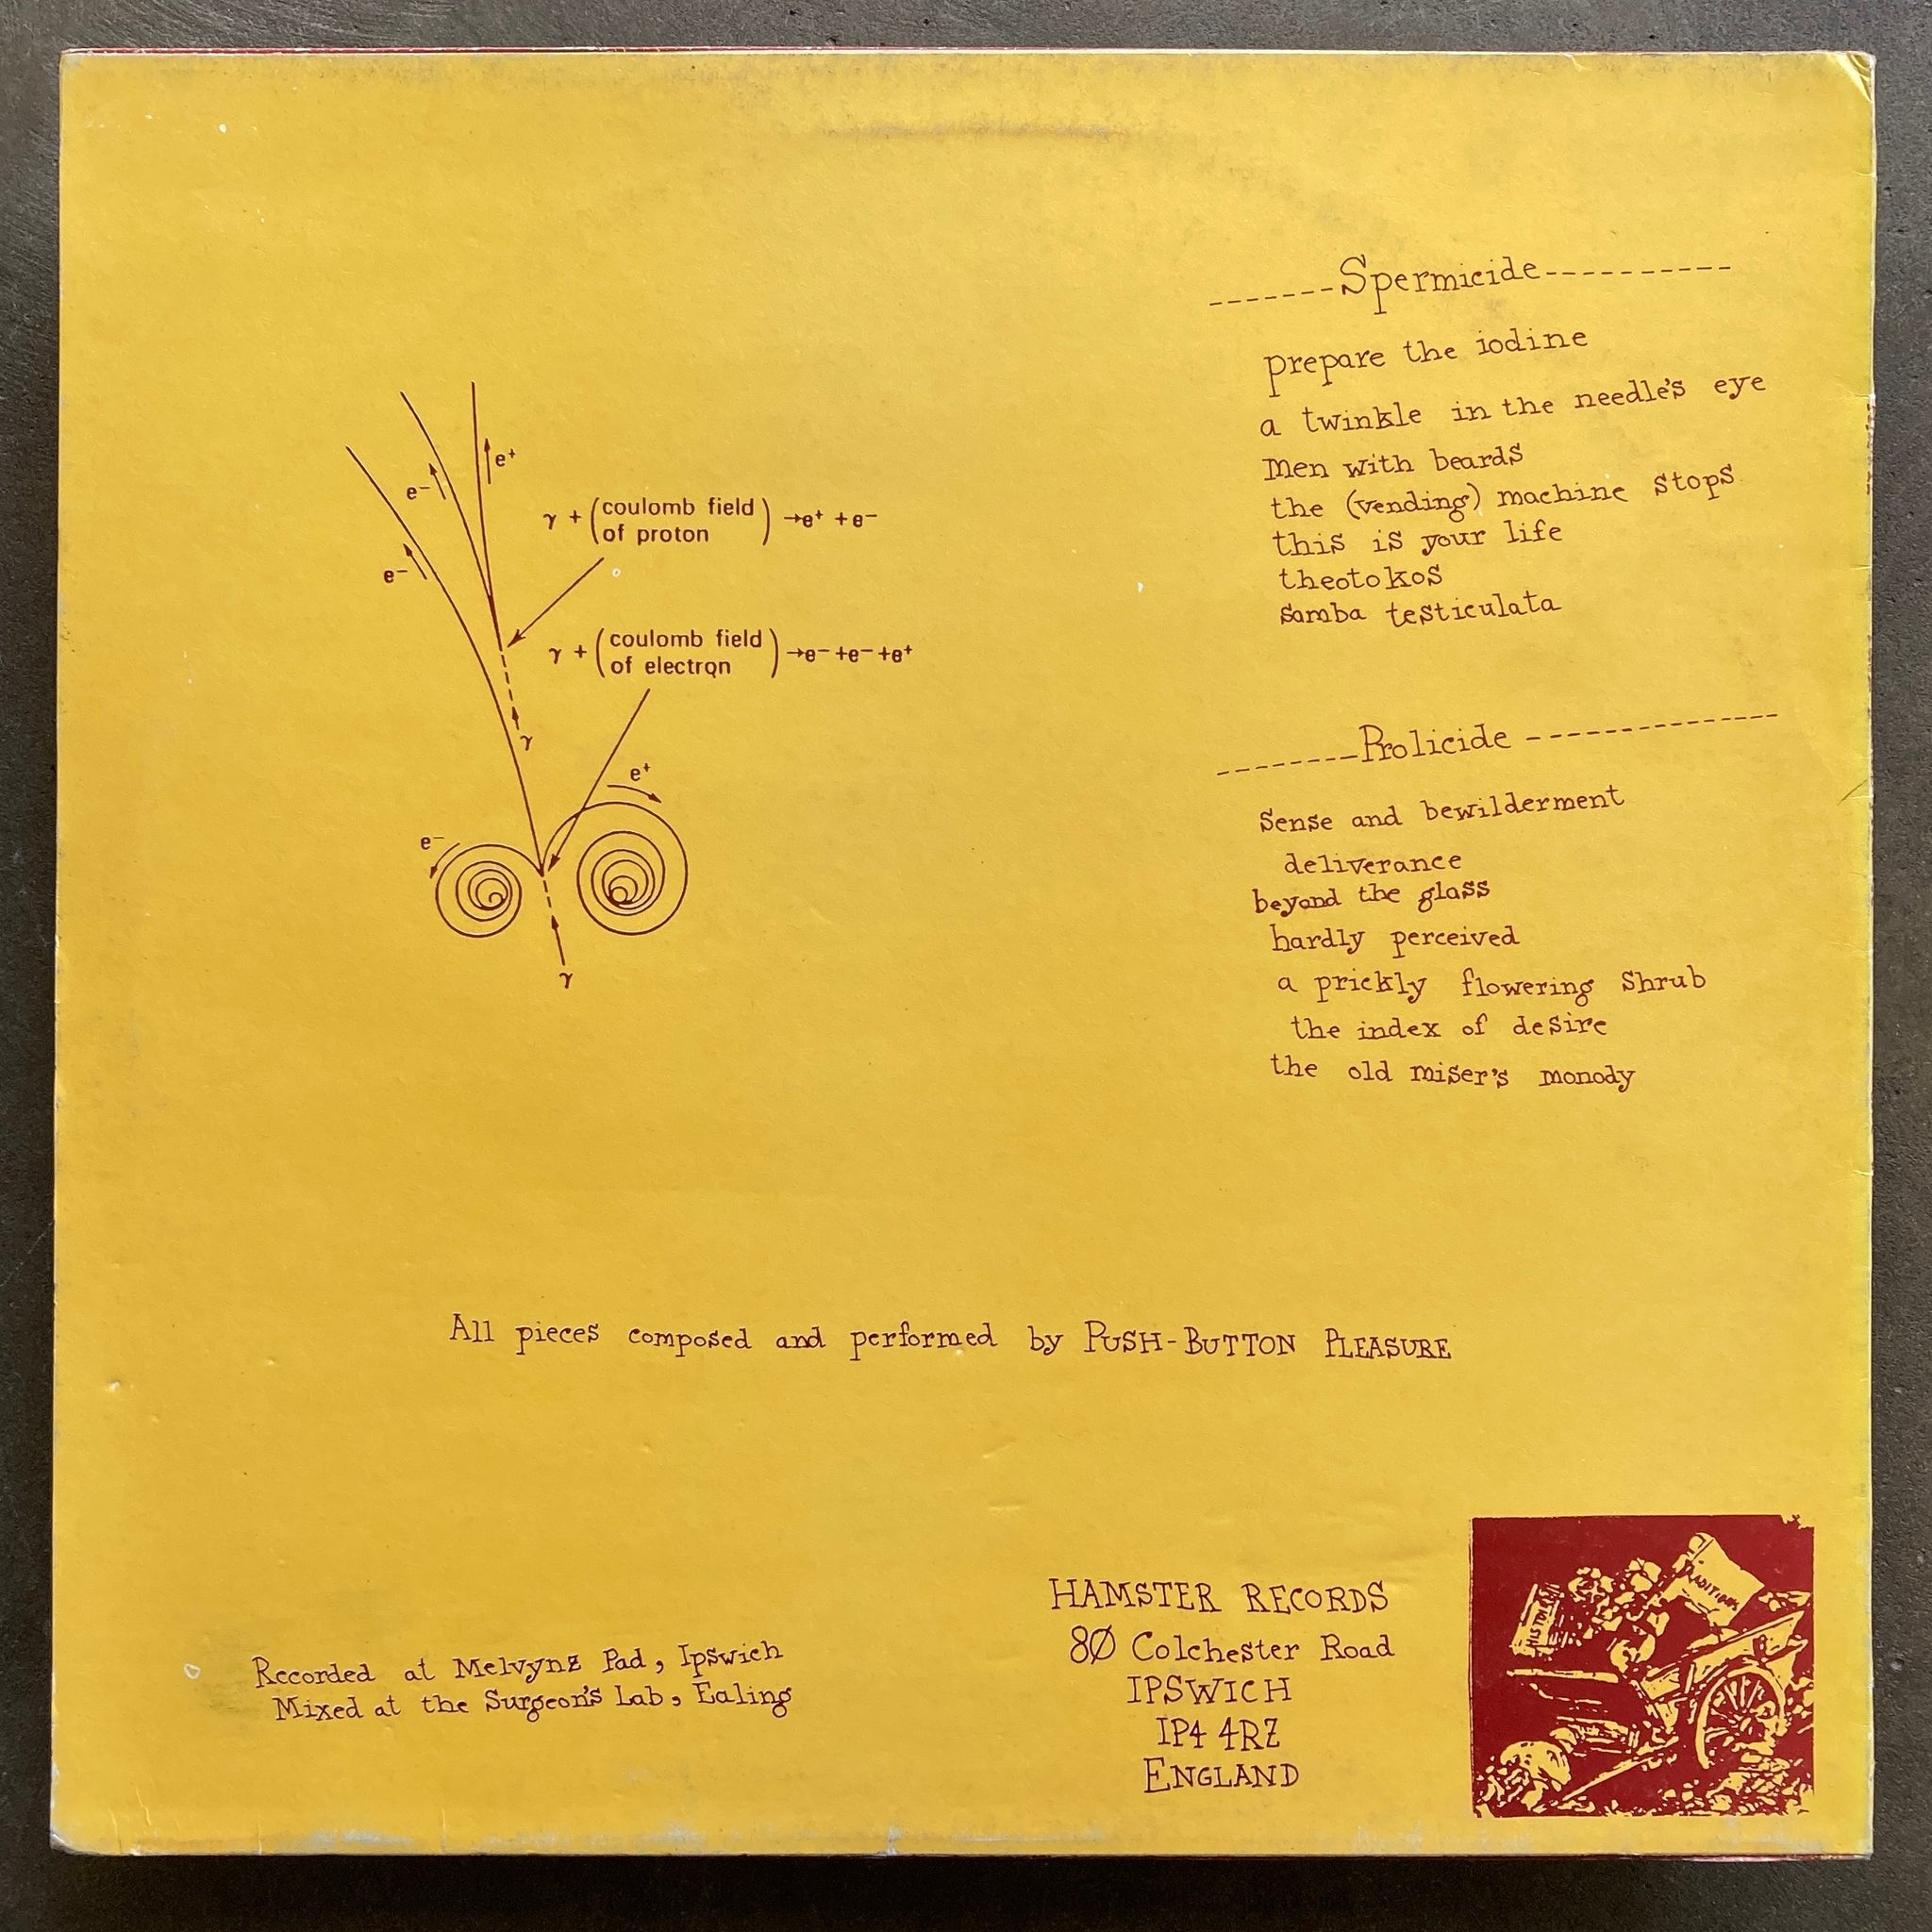 e+
e−
e−
γ + (coulomb field of proton) → e+ + e−
γ + (coulomb field of electron) → e− + e− + e+
γ
e+
e−
γ
-------Spermicide----------
prepare the iodine
a twinkle in the needle's eye
men with beards
the (vending) machine stops
this is your life
theotokos
samba testiculata
--------Prolicide-------------
Sense and bewilderment
deliverance
beyond the glass
hardly perceived
a prickly flowering shrub
the index of desire
the old miser's monody
All pieces composed and performed by PUSH-BUTTON PLEASURE
Recorded at Melvynz Pad, Ipswich
Mixed at the Surgeon's Lab, Ealing
HAMSTER RECORDS
8Ø Colchester Road
IPSWICH
IP4 4RZ
ENGLAND
TRADITIONS